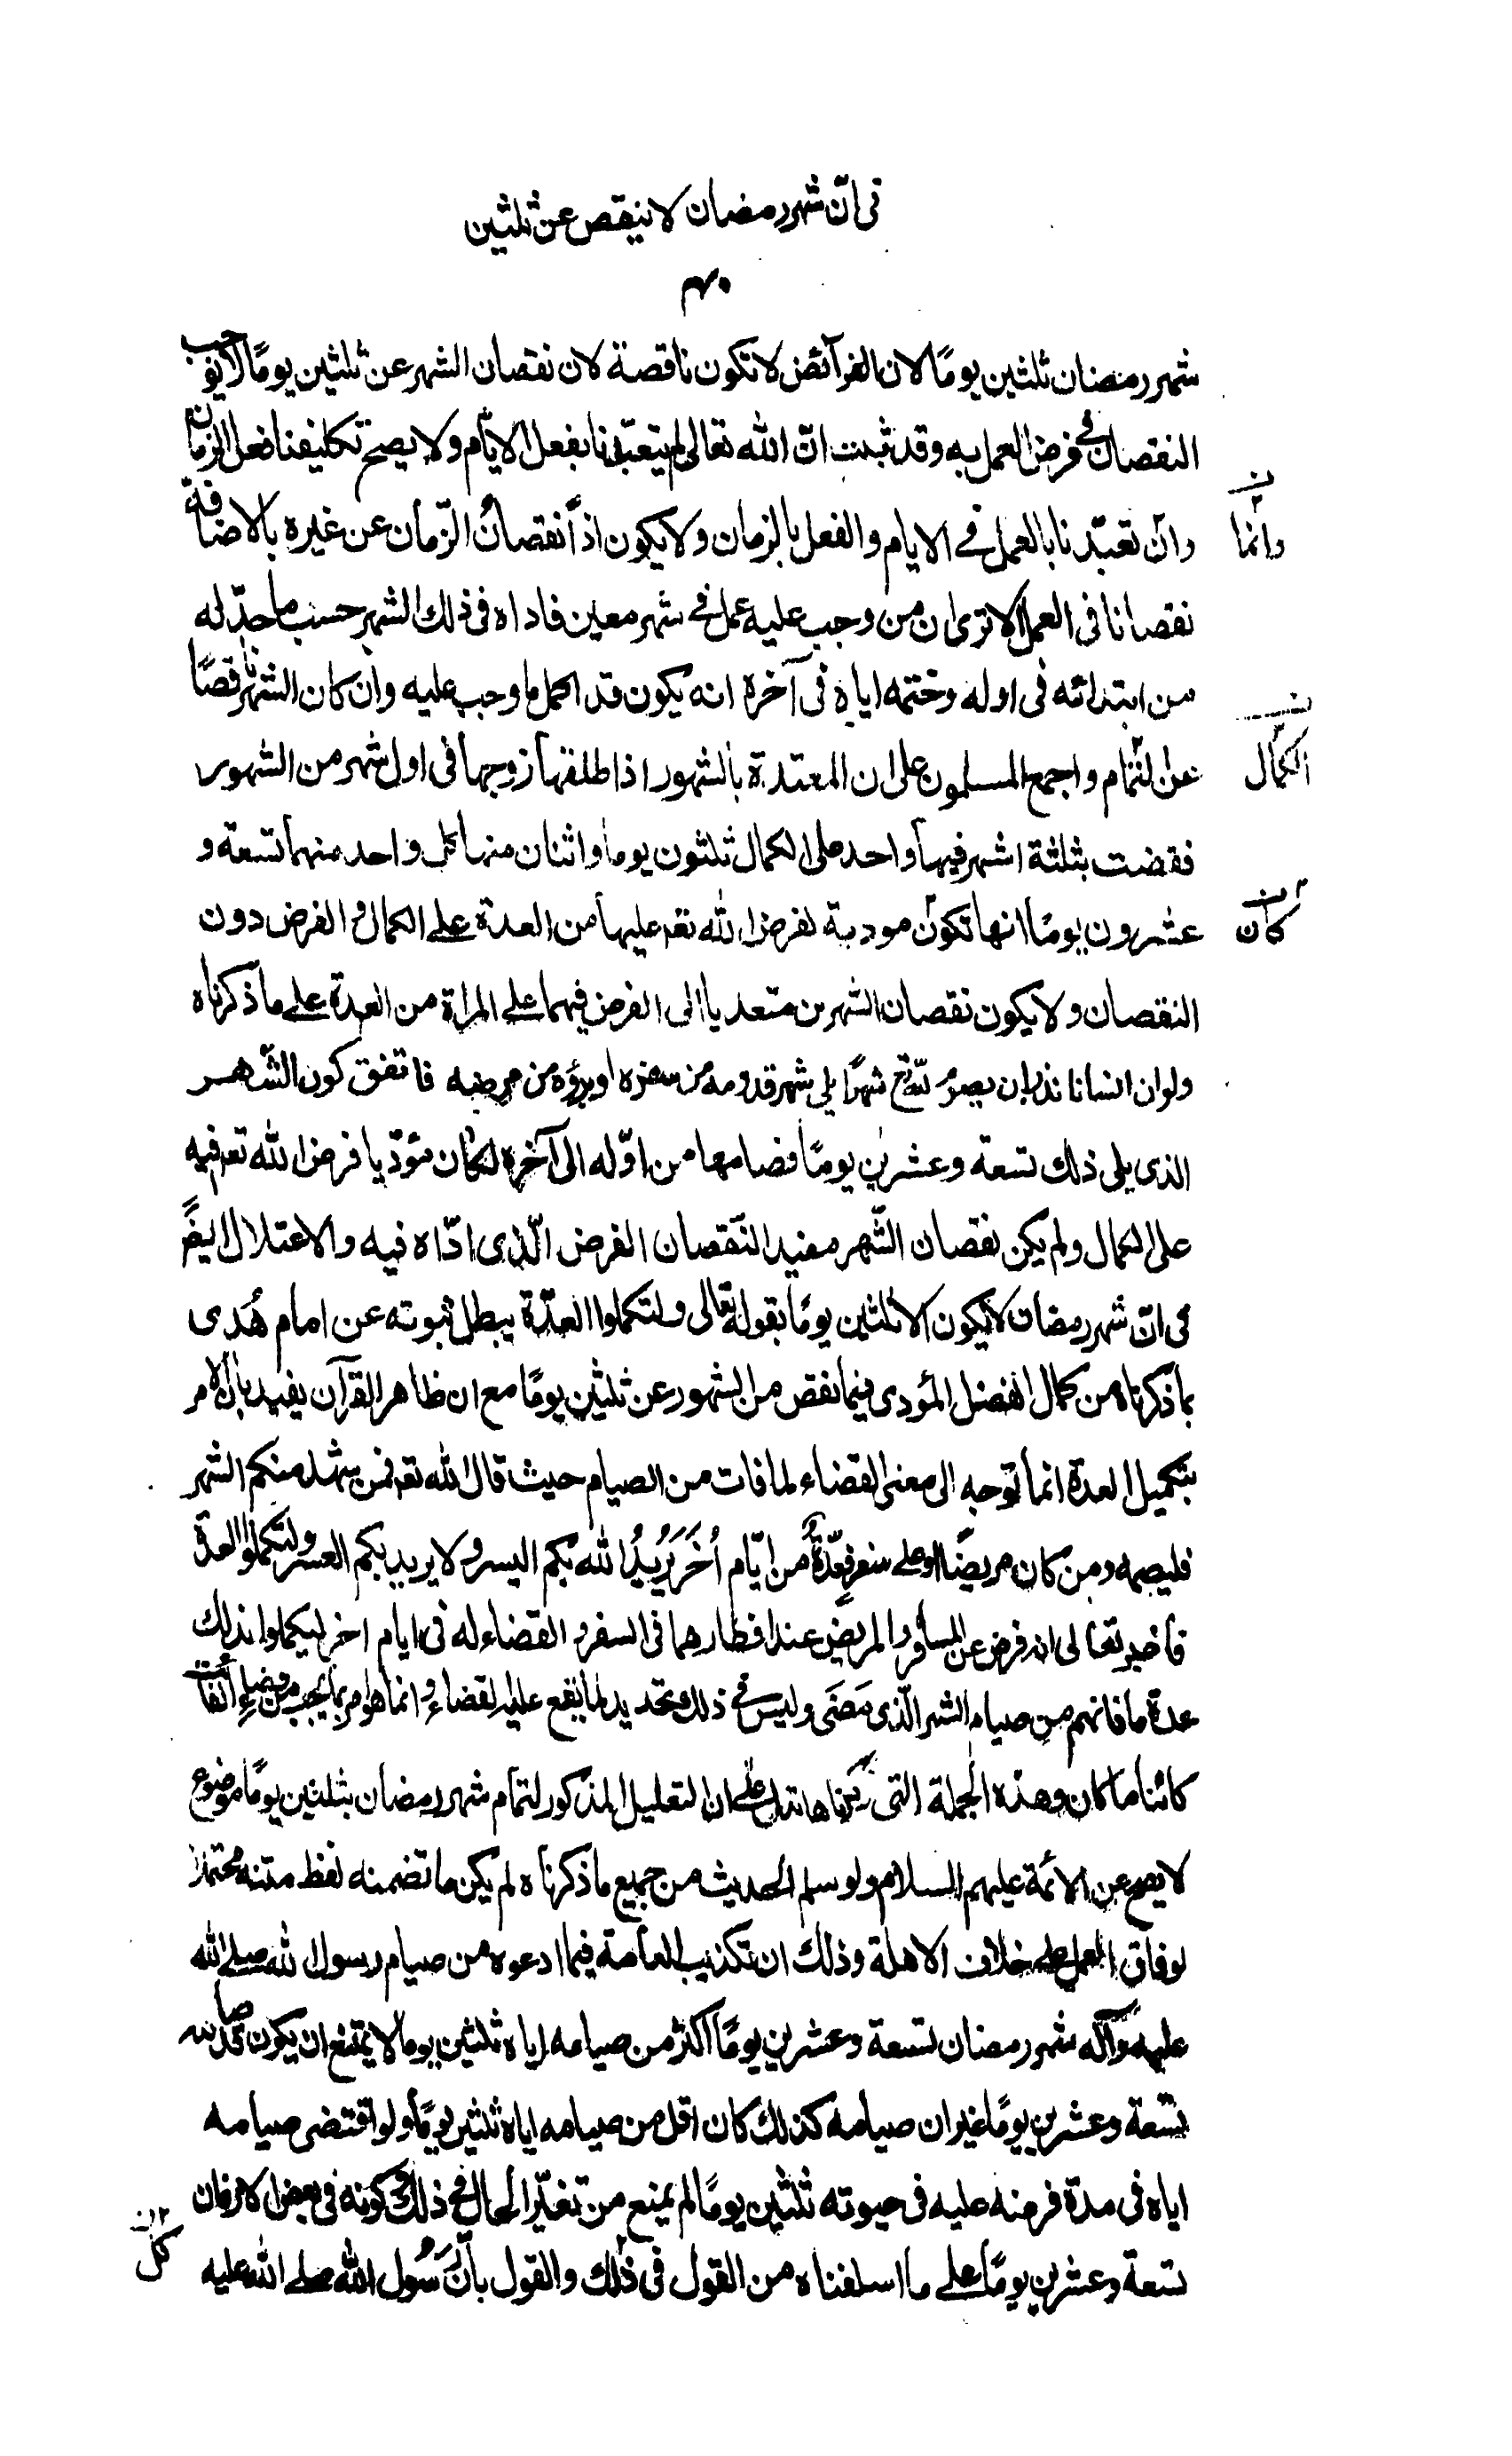 في انّ شهر رمضان لا ينقص عن ثلثين
۴۰
شهر رمضان ثلثين يومًا لان الفرآئض لا تكون ناقصة لان نقصان الشهر عن ثلثين يومًا لا يوجب
النقصان في فرض العمل به وقد ثبت انّ الله تعالى لم يتعبّدنا بفعل الايّام ولا يصحّ تكليفنا فعل الزمان
وانّ تعبّدنا بالعمل في الايام والفعل بالزمان ولا يكون اذاً نقصانُ الزّمان عن غيره بالاضافة
وانما
نقصانا فى العمل الا ترى ان من وجب عليه عمل في شهر معين فاداه فى ذلك الشهر حسب ما حدّ له
من ابتدائه فى اوله وختمه اياه فى آخره انه يكون قد اكمل ما وجب عليه وان كان الشهر ناقصًا
عن التمام واجمع المسلمون على ان المعتدة بالشهور اذا طلقها زوجها فى اول شهر من الشهور
الكمال
فقضت بثلثة اشهر فيها واحد على الكمال ثلثون يوما واثنان منها كل واحد منهما تسعة و
عشرون يومًا انها تكون مودية لفرض الله تعه عليها من العدة على الكمال و الفرض دون
كان
النقصان ولا يكون نقصان الشهرين متعديا الى الفرض فيهما على المراة من العدة على ما ذكرناه
ولو ان انسانا نذر ان يصوم لله تع شهرًا يلى شهر قدومه من سفره او برؤه من مرضه فاتفق كون الشّهر
الذى يلى ذلك تسعة وعشرين يومًا فصامها من اوّله الى آخره لكان مؤدّيا فرض الله تعه فيه
على الكمال ولم يكن نقصان الشّهر مفيدا لنقصان الفرض الّذى ادّاه فيه والاعتلال ايضً
فى انّ شهر رمضان لا يكون الا ثلثين يومًا بقوله تعالى ولتكملوا العدّة يبطل ثبوته عن امام هُدى
بما ذكرناه من كمال الفضل المؤدى فيما نقص من الشهور عن ثلثين يومًا مع ان ظاهر القرآن يفيد بان الامر
بتكميل العدة انما توجه الى معنى القضاء لما فات من الصيام حيث قال الله تعه فمن شهد منكم الشهر
فليصمه ومن كان مريضًا او على سفر فعِدّةٌ من ايّام اُخَرَ يُرِيدُ الله بكم اليسر ولا يريد بكم العسر ولتكملوا العدة
فاخبر تعالى انه فرض عن المسافر والمريض عند افطارهما فى السفر القضاء له فى ايام اخر ليكملوا بذلك
عدة ما فاتهم من صيام الشهر الّذى مَضَى وليس في ذلك تحديد لما يقع عليه القضاء وانما هو امر بما يجب من قضاء الفائت
كائنا ما كان وهذه الجملة التى ذكرناها تدل على ان التعليل المذكور لتمام شهر رمضان بثلثين يومًا موضوع
لا يصح عن الائمة عليهم السلام ولو سلم الحديث من جميع ما ذكرناه لم يكن ما تضمنه لفظ متنه محتملا
لوفاق العمل على خلاف الاهلة وذلك ان تكذيب العامة فيما ادعوه من صيام رسول الله صلى الله
عليه وآله شهر رمضان تسعة وعشرين يومًا اكثر من صيامه اياه ثلثين يومًا لا يمتنع ان يكون قد صامه
تسعة وعشرين يومًا غير ان صيامه كذلك كان اقل من صيامه اياه ثلثين يومًا ولو اقتضى صيامه
اياه فى مدة فرضه عليه فى حيوته ثلثين يومًا لم يمنع من تغيّر الحال في ذلك وكونه فى بعض الازمان
تسعة وعشرين يومًا على ما اسلفناه من القول فى ذلك والقول بانّ رَسُول الله صلى الله عليه
كل